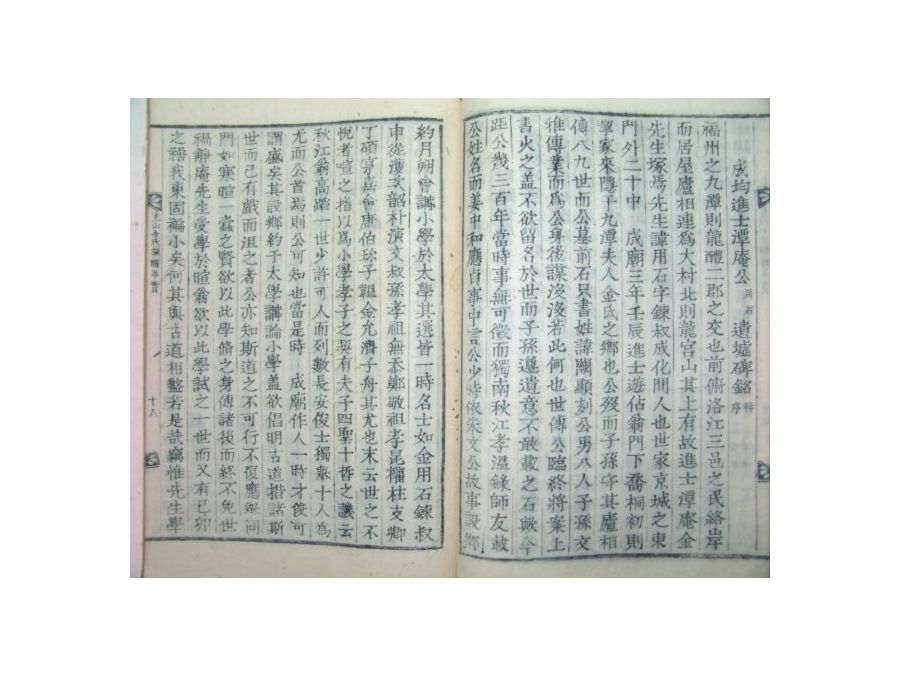 成均進士潭庵公用石遺墟碑銘幷序
福州之九潭則龍醴二郡之交也前俯洛江三邑之民絡岸
而居屋廬相連爲大村北則龍宮山其上有故進士潭庵金
先生塚焉先生諱用石字鍊叔成化間人也世家京城之東
門外二十中 成廟三年壬辰進士遊佔翁門下喬桐初則
挈家來隱于九潭夫人金氏之鄕也公歿而子孫守其廬相
傳八九世而公墓前石只書姓諱闕顯刻公男八人子孫文
雅傳業而爲公身後謀沒沒若此何也世傳公臨終將案上
書火之盖不欲留名於世而子孫遵遺意不敢載之石歟今
距公幾三百年當時事無可徵而獨南秋江孝溫錄師友載
公姓名而姜中和應貞事中言公少時依朱文公故事設鄕
約月朔會講小學於太學其選皆一時名士如金用石鍊叔
申從濩次韶朴演文叔孫孝祖無忝鄭敬祖孝昆權柱支卿
丁碩亨嘉會康伯珍子韞金允濟子舟其尤也末云世之不
悅者喧之指以爲小學孝子之契有夫子四聖十哲之譏云
秋江翁高蹈一世少許可人而列數長安俊士獨擧十人爲
尤而公首焉則公可知也當是時 成廟作人一時才俊可
謂盛矣其設鄕約于太學講論小學盖欲倡明古道措諸斯
世而已有戲而沮之者公亦知斯道之不可行不復應擧同
門如寒暄一蠹之賢欲以此學脩之身傳諸後而終不免世
禍靜庵先生受學於暄翁欲以此學試之一世而又有己卯
之禍我東固褊小矣何其與古道相盭若是哉竊惟先生學
十八